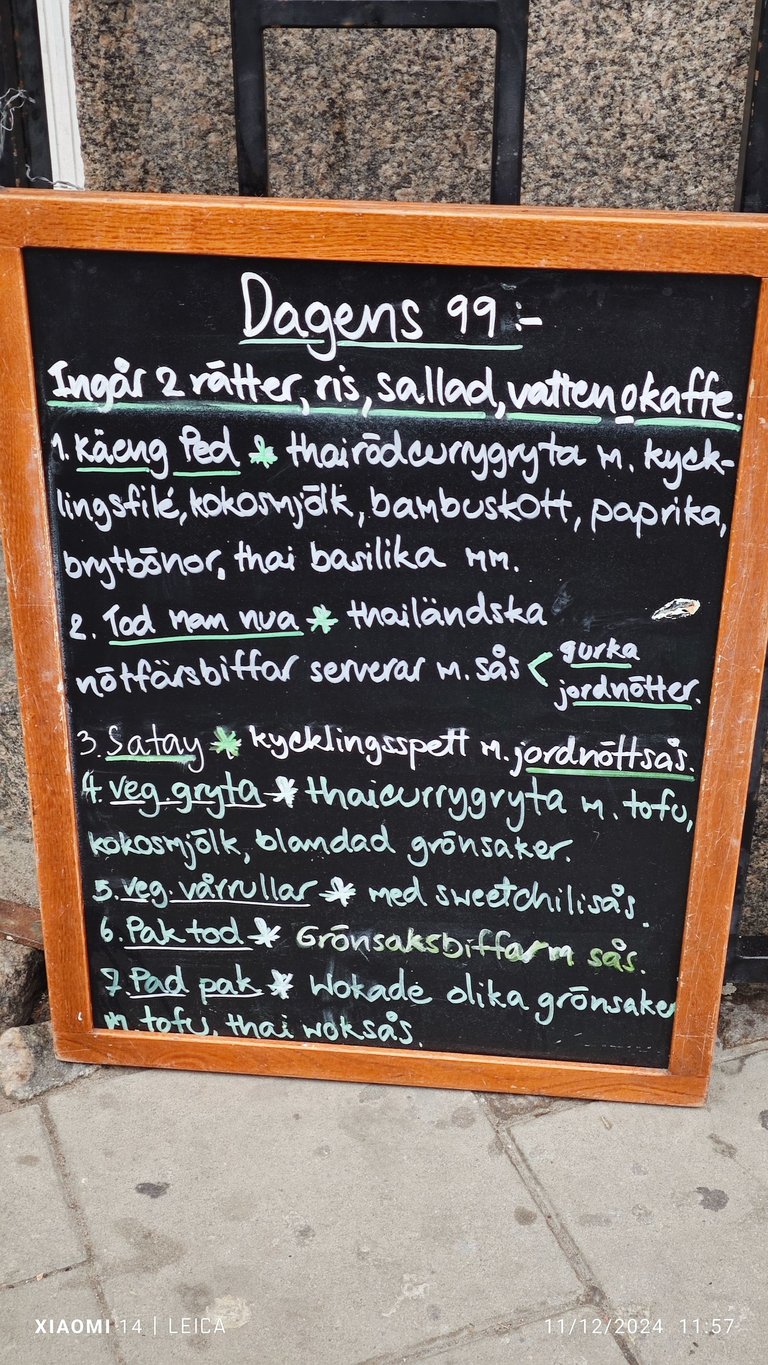 Dagens 99:-
Ingår 2 rätter, ris, sallad, vatten o kaffe.
1. Käeng Ped * thairödcurrygryta m. kyck-
lingsfilé, kokosmjölk, bambuskott, paprika,
brytbönor, thai basilika mm.
2. Tod man nua * thailändska
nötfärsbiffar serverar m. sås < gurka
jordnötter.
3. Satay * kycklingsspett m. jordnöttsås.
4. veg. gryta * thaicurrygryta m. tofu,
kokosmjölk, blandad grönsaker.
5. veg. vårrullar * med sweetchilisås.
6. Pak tod * Grönsaksbiffar m sås.
7 Pad pak * Wokade olika grönsaker
m. tofu, thai woksås.
XIAOMI 14 | LEICA
11/12/2024 11:57